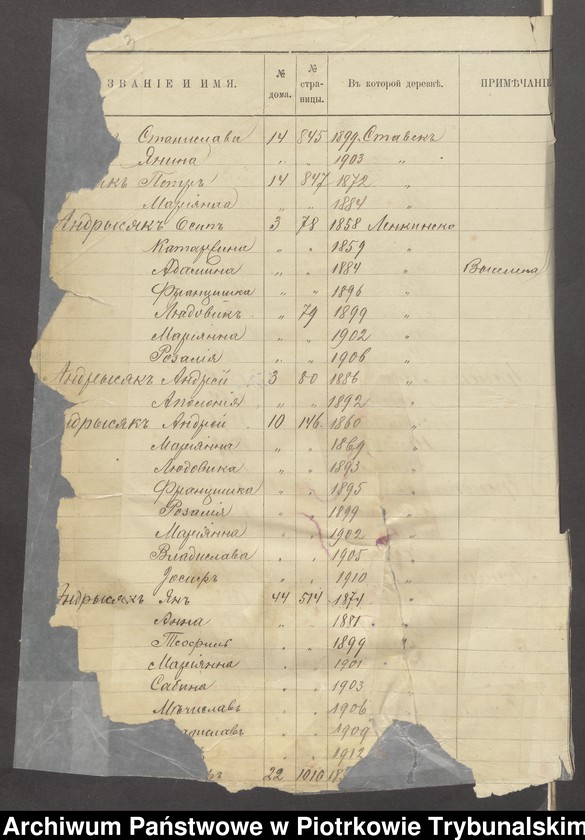 ЗВАНІЕ И ИМЯ. № дома. № стра-ницы. Въ которой деревнѣ. ПРИМѢЧАНІЕ
Станислава 14 845 1899 Ставекъ
Янина „ „ 1903 „
Петръ 14 847 1872 „
Маріянна „ „ 1884 „
Андрысякъ Осипъ 3 78 1858
Катаржина „ „ 1859 „
Адамина „ „ 1884 „
Францишка „ „ 1896 „
Людовикъ „ 79 1899 „
Маріянна „ „ 1902 „
Розалія „ „ 1906 „
Андрысякъ Андрей 3 80 1886 „
Аполонія „ „ 1892 „
ндрысякъ Андрей 10 146 1860 „
Маріянна „ „ 1869 „
Людовика „ „ 1893 „
Францишка „ „ 1895 „
Розалія „ „ 1899 „
Маріянна „ „ 1902 „
Владислава „ „ 1905 „
Іосифъ „ „ 1910 „
Андрысякъ Янъ 44 514 1874 „
Анна „ „ 1881 „
Теофиль „ „ 1899 „
Маріянна „ „ 1901 „
Сабина „ „ 1903 „
Мѣчиславъ „ „ 1906
адиславъ „ „ 1909
„ „ 1912
ъ 22 1010
Archiwum Państwowe w Piotrkowie Trybunalskim